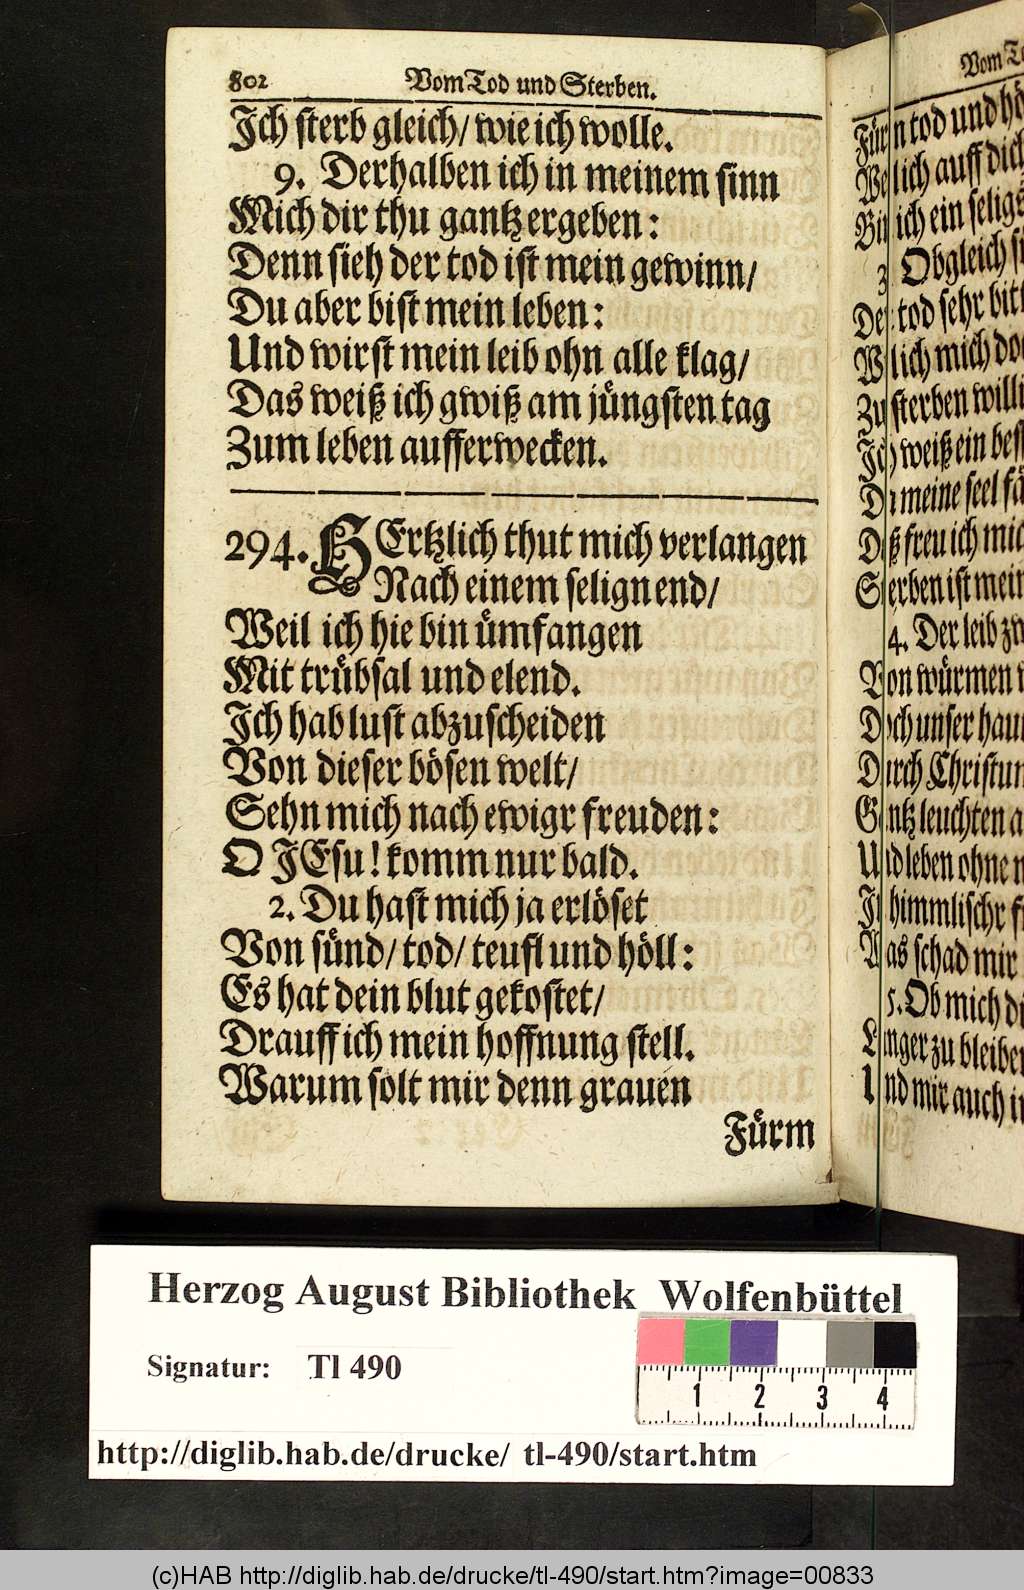 802 Vom Tod und Sterben.
Ich sterb gleich/ wie ich wolle.
9. Derhalben ich in meinem sinn
Mich dir thu gantz ergeben:
Denn sieh der tod ist mein gewinn/
Du aber bist mein leben:
Und wirst mein leib ohn alle klag/
Das weiß ich gwiß am jüngsten tag
Zum leben aufferwecken.
294. HErtzlich thut mich verlangen
Nach einem selign end/
Weil ich hie bin ümfangen
Mit trübsal und elend.
Ich hab lust abzuscheiden
Von dieser bösen welt/
Sehn mich nach ewigr freuden:
O JEsu! komm nur bald.
2. Du hast mich ja erlöset
Von sünd/ tod/ teufl und höll:
Es hat dein blut gekostet/
Drauff ich mein hoffnung stell.
Warum solt mir denn grauen
Fürm
Vom
Fürn tod und
lich auff dich
ich ein seligs
3. Obgleich
tod sehr
lich mich
Zu sterben
Ich weiß ein
meine seel
Daß freu ich mich
Sterben ist mein
4. Der leib
Von würmen
Doch unser
Durch Christum
Gantz leuchten
Und leben ohne
In himmlischr
Was schad mir
5. Ob mich
Länger zu
Und mir auch
Herzog August Bibliothek Wolfenbüttel
Signatur: Tl 490
1 2 3 4
http://diglib.hab.de/drucke/ tl-490/start.htm
(c)HAB http://diglib.hab.de/drucke/tl-490/start.htm?image=00833